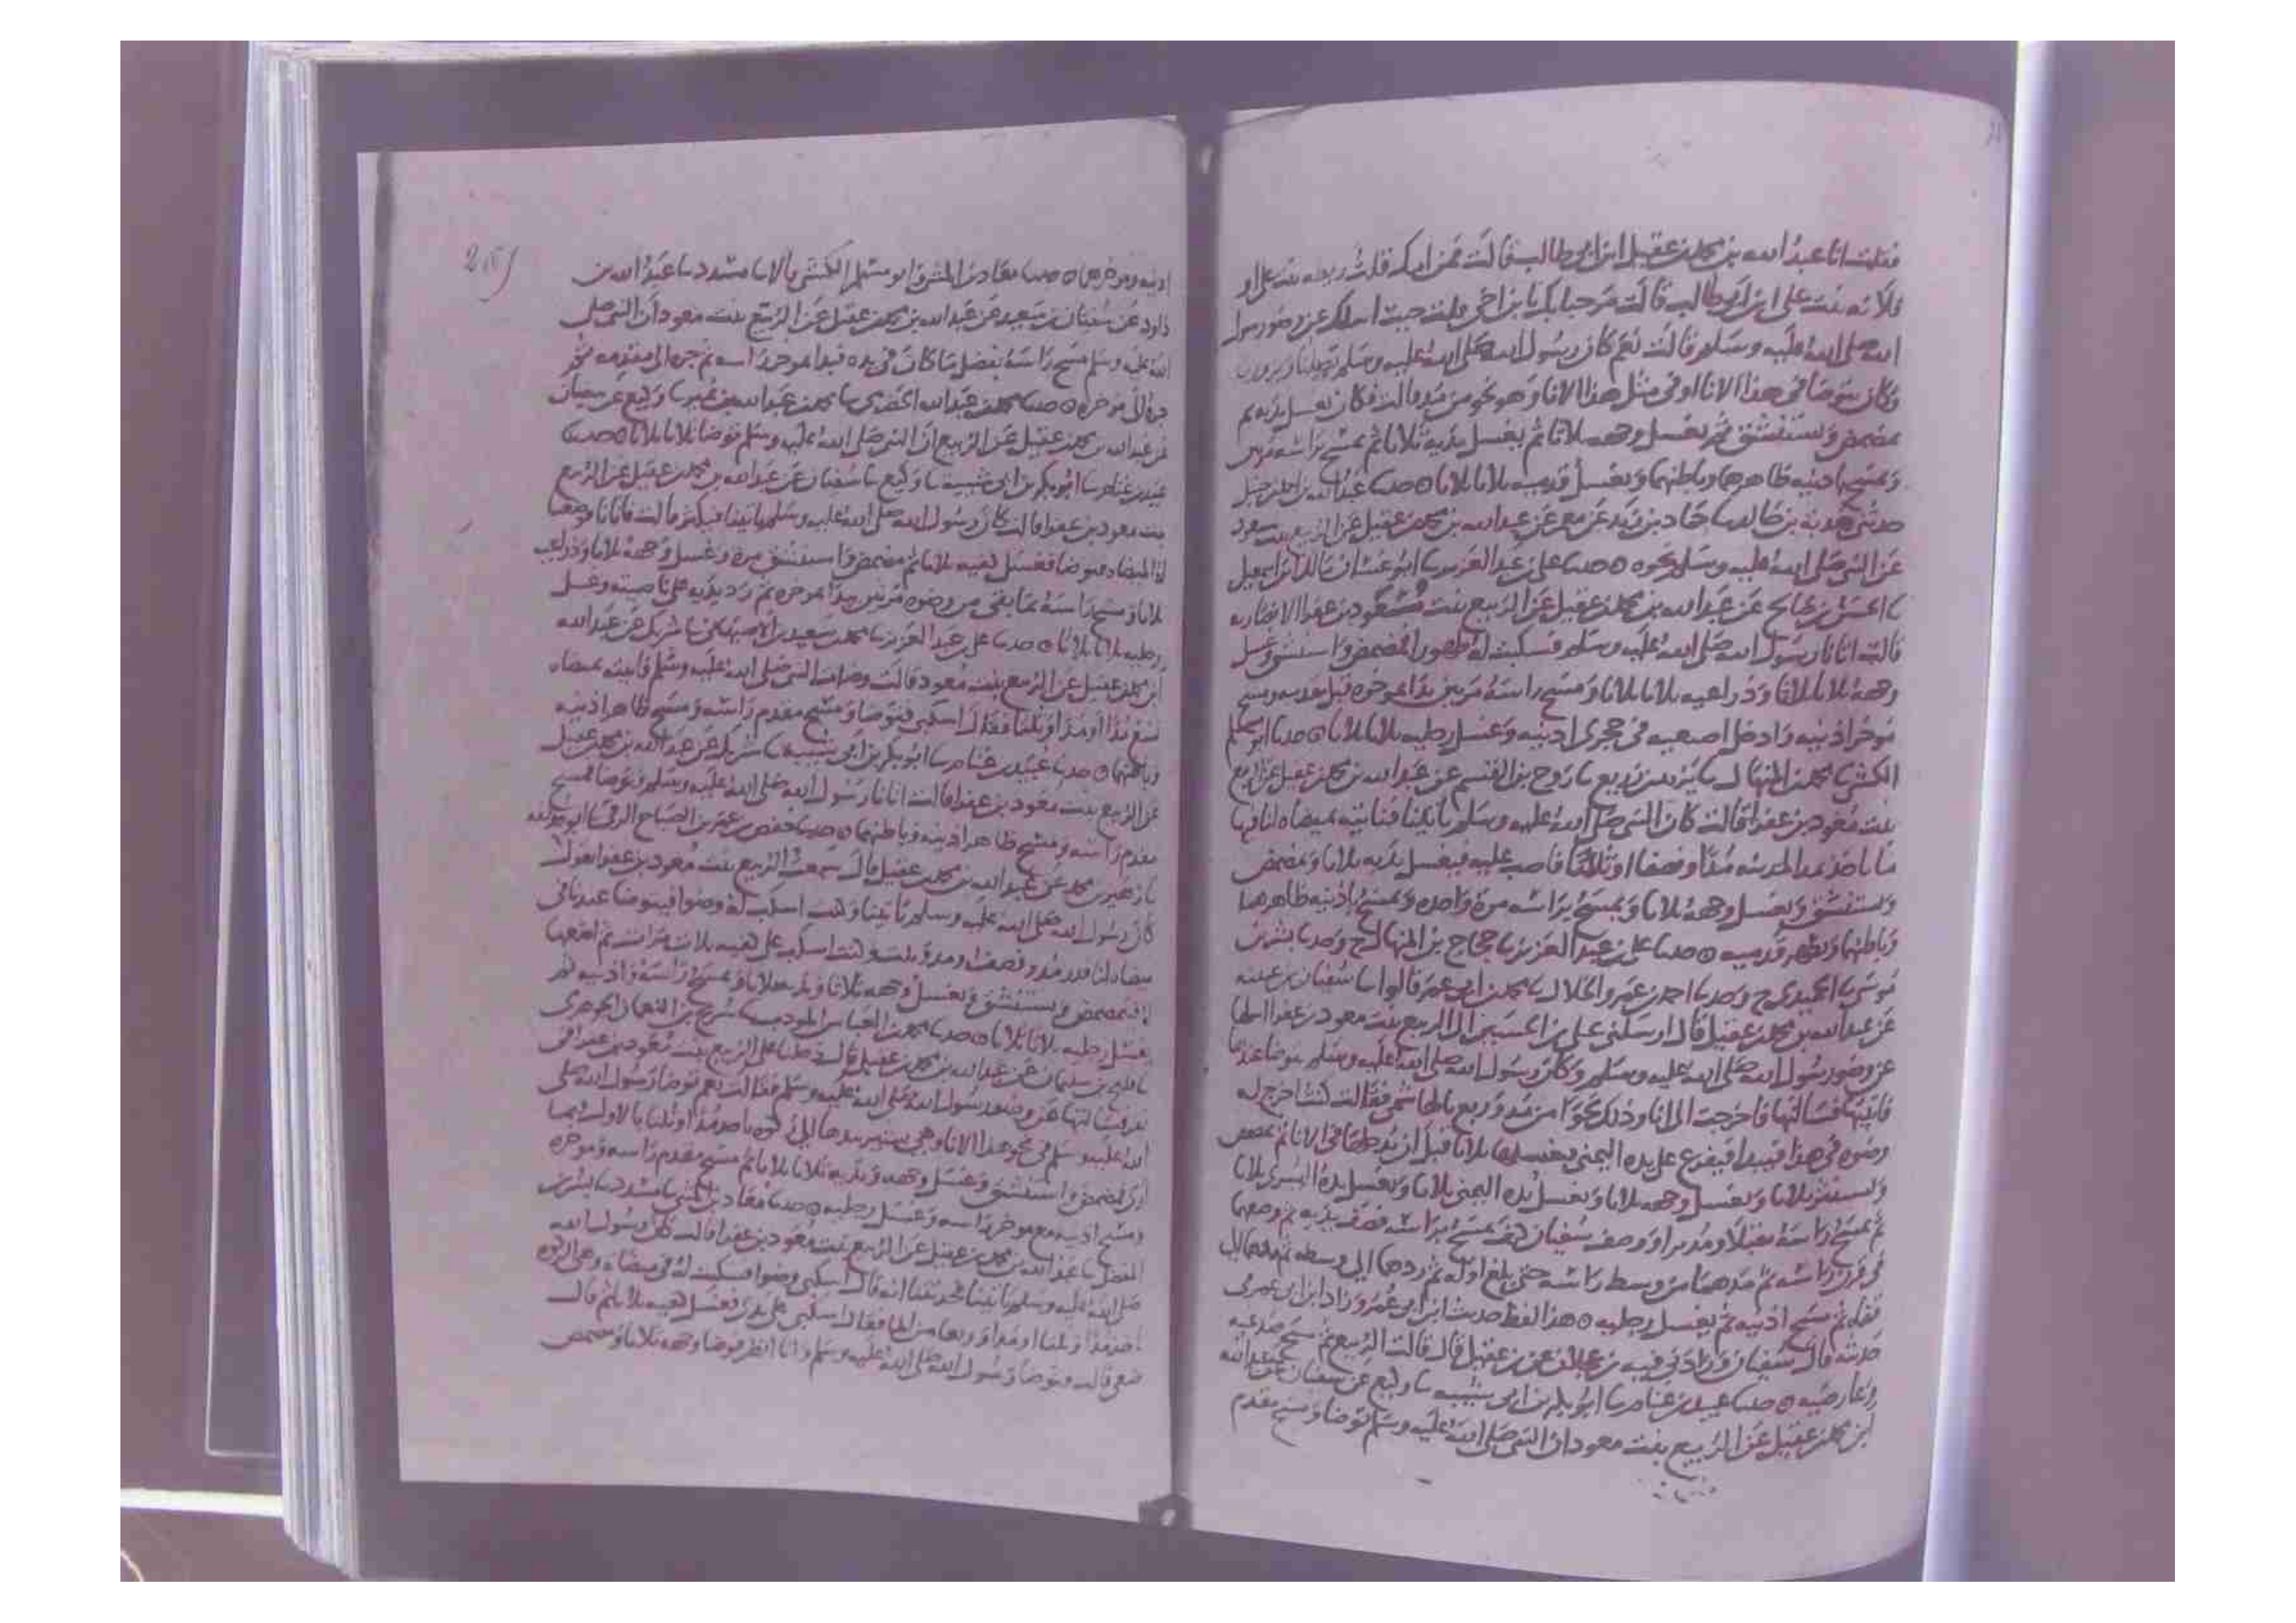 فقلت انا عبد الله بن محمد بن عقيل ابن ابي طالب قالت فمن امك قلت ريطه بنت علي او
فلانه بنت علي ابن ابي طالب قالت مرحبا بك يا بن اخي قلت جيت اسلك عن وضو رسول
الله صلى الله عليه وسلم قالت نعم كان رسول الله صلى الله عليه وسلم يصلنا ويزورنا
وكان يتوضا في هذا الانا او في مثل هذا الانا وهو نحو من مد قالت فكان يغسل يديه ثم
يمضمض ويستنشق ثم يغسل وجهه ثلاثا ثم يغسل يديه ثلاثا ثم يمسح براسه مرتين
ويمسح باذنيه ظاهرهما وباطنهما ويغسل قدميه ثلاثا ثلاثا ۞ حدثنا عبد الله بن احمد بن حنبل
حدثني هدبه بن خالد ثنا حماد بن زيد عن معمر عن عبد الله بن محمد بن عقيل عن الربيع بنت معوذ
عن النبي صلى الله عليه وسلم نحوه ۞ حدثنا علي بن عبد العزيز ثنا ابو غسان مالك بن اسمعيل
ثنا الحسن بن صالح عن عبد الله بن محمد بن عقيل عن الربيع بنت معوذ بن عفرا الانصاريه
قالت اتانا رسول الله صلى الله عليه وسلم فسكبت له طهورا فمضمض واستنشق وغسل
وجهه ثلاثا ثلاثا وذراعيه ثلاثا ثلاثا ومسح راسه مرتين بدا بموخره قبل مقدمه ومسح
موخر اذنيه وادخل اصبعيه في حجري اذنيه وغسل رجليه ثلاثا ثلاثا ۞ حدثنا ابو مسلم
الكشي ثنا محمد بن المنهال ثنا يزيد بن زريع ثنا روح بن القسم عن عبد الله بن محمد بن عقيل عن الربيع
بنت معوذ بن عفرا قالت كان النبي صلى الله عليه وسلم ياتينا فناتيه بميضاه لنا فيها
ما ياخذ بمد المدينه مدا ونصفا او ثلثا فاصب عليه فيغسل يديه ثلاثا ويمضمض
ويستنشق ويغسل وجهه ثلاثا ويمسح براسه مره واحده ويمسح باذنيه ظاهرهما
وباطنهما ويطهر قدميه ۞ حدثنا علي بن عبد العزيز ثنا حجاج بن المنهال ح وحدثنا بشر بن
موسى ثنا الحميدي ح وحدثنا احمد بن عمرو الخلال ثنا محمد بن ابي عمر قالوا ثنا سفيان بن عيينه
عن عبد الله بن محمد بن عقيل قال ارسلني علي بن الحسين الى الربيع بنت معوذ بن عفرا اسلها
عن وضو رسول الله صلى الله عليه وسلم وكان رسول الله صلى الله عليه وسلم يتوضا عندها
فاتيتها فسالتها فاخرجت الي انا وذلك نحوا من مد وربع بالهاشمي فقالت كنت اخرج له
وضوه في هذا فيبدا فيفرغ على يده اليمنى فيغسلها ثلاثا قبل ان يدخلها في الانا ثم يمضمض
ويستنثر ثلاثا ويغسل وجهه ثلاثا ويغسل يده اليمنى ثلاثا ويغسل يده اليسرى ثلاثا
ثم يمسح راسه مقبلا ومدبرا ووصف سفيان كيف يمسح براسه فصف يديه ثم وضعها
في قرن راسه ثم مدهما من وسط راسه حتى بلغ اوله ثم ردها الى وسطه ثم مدها الى
قفاه ثم مسح اذنيه ثم يغسل رجليه ۞ هذا لفظ حديث ابن ابي عمر وزاد ابن ابي عمر في
حديثه قال سفيان وزادني فيه بن عجلان عن بن عقيل قال قالت الربيع ثم مسح صدغيه
وعارضيه ۞ حدثنا عبيد بن غنام ثنا ابو بكر بن ابي شيبه ثنا وكيع عن سفيان عن عبد الله
ابن محمد بن عقيل عن الربيع بنت معوذ ان النبي صلى الله عليه وسلم توضا ومسح مقدم
اذنيه وموخرهما ۞ حدثنا معاذ بن المثنى وابو مسلم الكشي قالا ثنا مسدد ثنا عبد الله بن
داود عن سفيان بن سعيد عن عبد الله بن محمد بن عقيل عن الربيع بنت معوذ ان النبي صلى
الله عليه وسلم مسح راسه بفضل ما كان في يده فبدا بموخر راسه ثم جره الى مقدمه ثم
جره الى موخره ۞ حدثنا محمد بن عبد الله الحضرمي ثنا محمد بن عبد الله بن نمير ثنا وكيع عن سفيان
عن عبد الله بن محمد بن عقيل عن الربيع ان النبي صلى الله عليه وسلم توضا ثلاثا ثلاثا ۞ حدثنا
عبيد بن غنام ثنا ابو بكر بن ابي شيبه ثنا وكيع ثنا سفيان عن عبد الله بن محمد بن عقيل عن الربيع
بنت معوذ بن عفرا قالت كان رسول الله صلى الله عليه وسلم ياتينا فيكثر قالت فاتانا فوضعنا
له الميضاه فتوضا فغسل كفيه ثلاثا ثم مضمض واستنشق مره وغسل وجهه ثلاثا وذراعيه
ثلاثا ومسح راسه بما بقي من وضوه مرتين يبدا بموخره ثم رد يديه على ناصيته وغسل
رجليه ثلاثا ثلاثا ۞ حدثنا علي بن عبد العزيز ثنا محمد بن سعيد بن الاصبهاني ثنا شريك عن عبد الله
ابن محمد بن عقيل عن الربيع بنت معوذ قالت وضات النبي صلى الله عليه وسلم فاتيته بميضاه
تسع مدا او مدا وثلثا فقال اسكبي فتوضا ومسح مقدم راسه ومسح ظاهر اذنيه
وباطنهما ۞ حدثنا عبيد بن غنام ثنا ابو بكر بن ابي شيبه ثنا شريك عن عبد الله بن محمد بن عقيل
عن الربيع بنت معوذ بن عفرا قالت اتانا رسول الله صلى الله عليه وسلم فتوضا فمسح
مقدم راسه ومسح ظاهر اذنيه وباطنهما ۞ حدثنا حفص بن عمر بن الصباح الرقي ثنا ابو حذيفه
ثنا زهير بن محمد عن عبد الله بن محمد بن عقيل قال سمعت الربيع بنت معوذ بن عفرا تقول
كان رسول الله صلى الله عليه وسلم ياتينا وكنت اسكب له وضوا فيتوضا عندنا في
ميضاه لنا قدر مد ونصف او مد وثلث وكنت اسكب على كفيه ثلاث مرات ثم اضعها
له فيمضمض ويستنشق ويغسل وجهه ثلاثا ويديه ثلاثا ويمسح راسه واذنيه ثم
يغسل رجليه ثلاثا ثلاثا ۞ حدثنا محمد بن العباس المودب ثنا سريج بن النعمان الجوهري
ثنا فليح بن سليمان عن عبد الله بن محمد بن عقيل قال دخلنا على الربيع بنت معوذ بن عفرا في
نفر فسالتها عن وضو رسول الله صلى الله عليه وسلم فقالت نعم توضا رسول الله صلى
الله عليه وسلم في نحو هذا الانا وهي تشير بيدها الى ركوه تاخذ مدا وثلثا بالاول بما
ارى فمضمض واستنشق وغسل وجهه ويديه ثلاثا ثلاثا ثم مسح مقدم راسه وموخره
ومسح اذنيه مع موخر راسه وغسل رجليه ۞ حدثنا معاذ بن المثنى ثنا مسدد ثنا بشر بن
المفضل ثنا عبد الله بن محمد بن عقيل عن الربيع بنت معوذ بن عفرا قالت كان رسول الله
صلى الله عليه وسلم ياتينا فحدثتنا انه قال اسكبي وضوا فسكبت له في ميضاه وهي الركوه
اخذ مدا وثلثا او مدا وربعا من الما فقال اسكبي على يدي فغسل كفيه ثلاثا ثم قال
ضعي قالت وتوضا رسول الله صلى الله عليه وسلم وانا انظر فوضا وجهه ثلاثا ومضمض